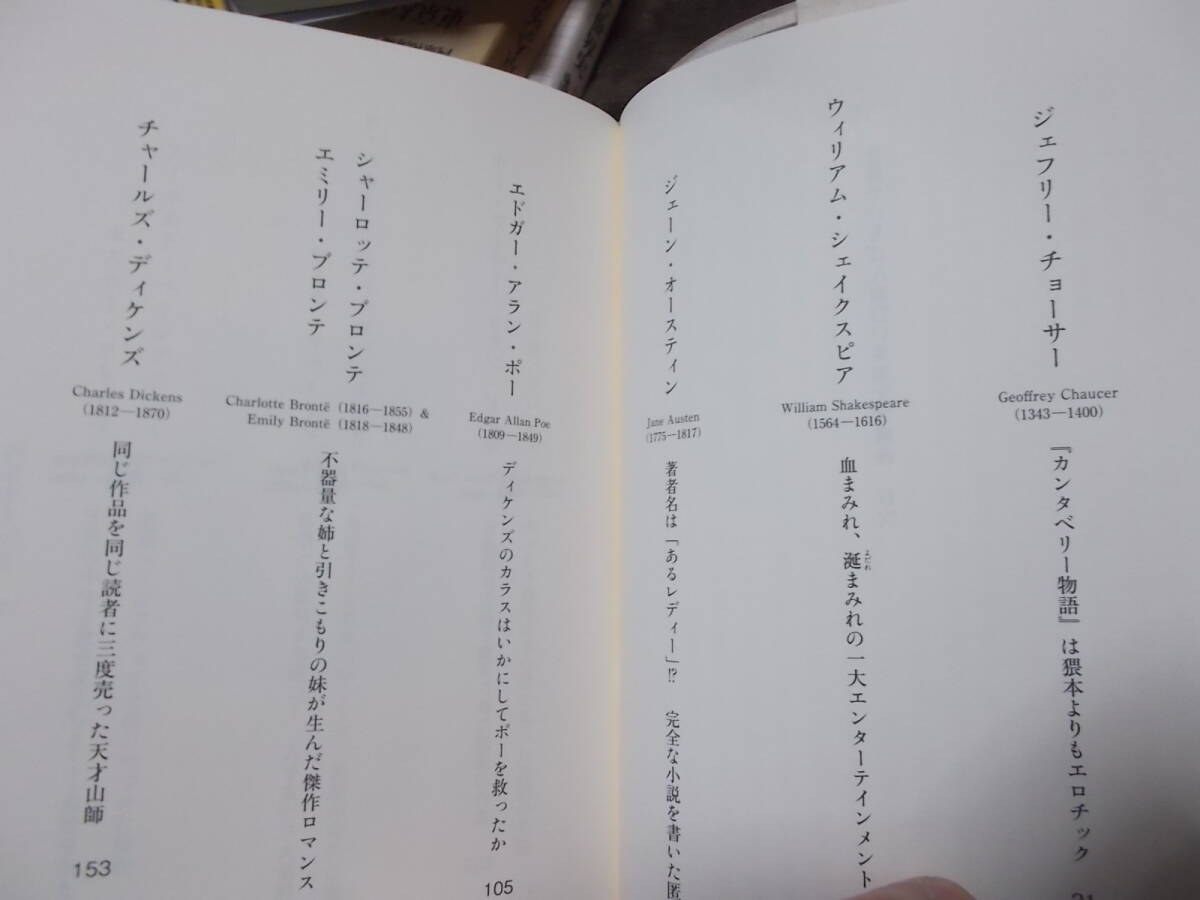 ジェフリー・チョーサー
Geoffrey Chaucer
(1343―1400)
『カンタベリー物語』は猥本よりもエロチック
ウィリアム・シェイクスピア
William Shakespeare
(1564―1616)
血まみれ、涎まみれの一大エンターテインメント
よだれ
ジェーン・オースティン
Jane Austen
(1775―1817)
著者名は「あるレディー」!? 完全な小説を書いた匿
エドガー・アラン・ポー
Edgar Allan Poe
(1809―1849)
ディケンズのカラスはいかにしてポーを救ったか
105
シャーロッテ・ブロンテ
エミリー・ブロンテ
Charlotte Brontë (1816―1855) &
Emily Brontë (1818―1848)
不器量な姉と引きこもりの妹が生んだ傑作ロマンス
チャールズ・ディケンズ
Charles Dickens
(1812―1870)
同じ作品を同じ読者に三度売った天才山師
153